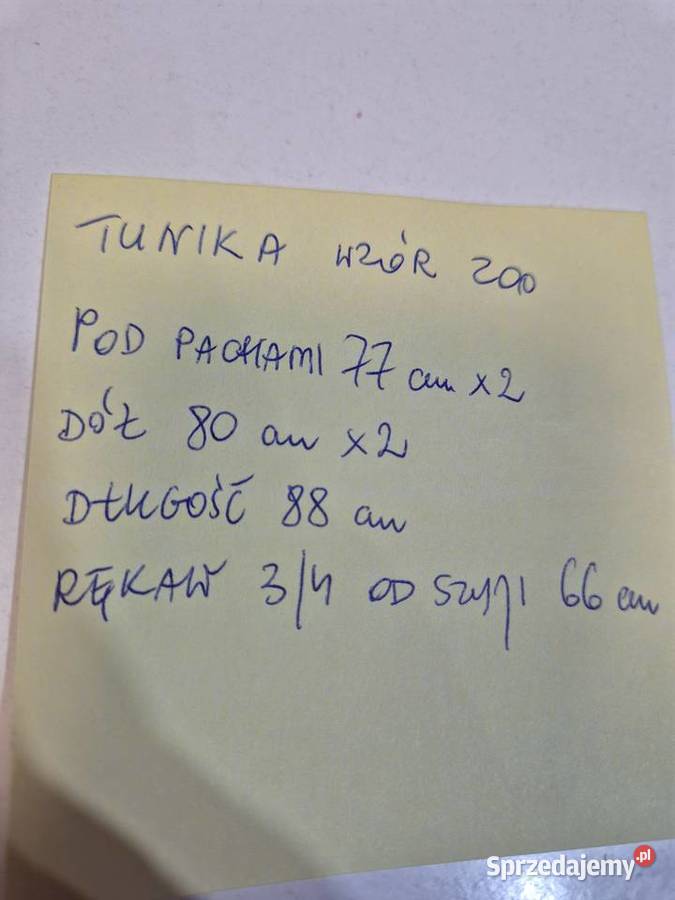 TUNIKA WZÓR ZOO
POD PACHAMI 77 cm x2
DÓŁ 80 cm x2
DŁUGOŚĆ 88 cm
RĘKAW 3/4 OD SZYJI 66 cm
Sprzedajemy.pl